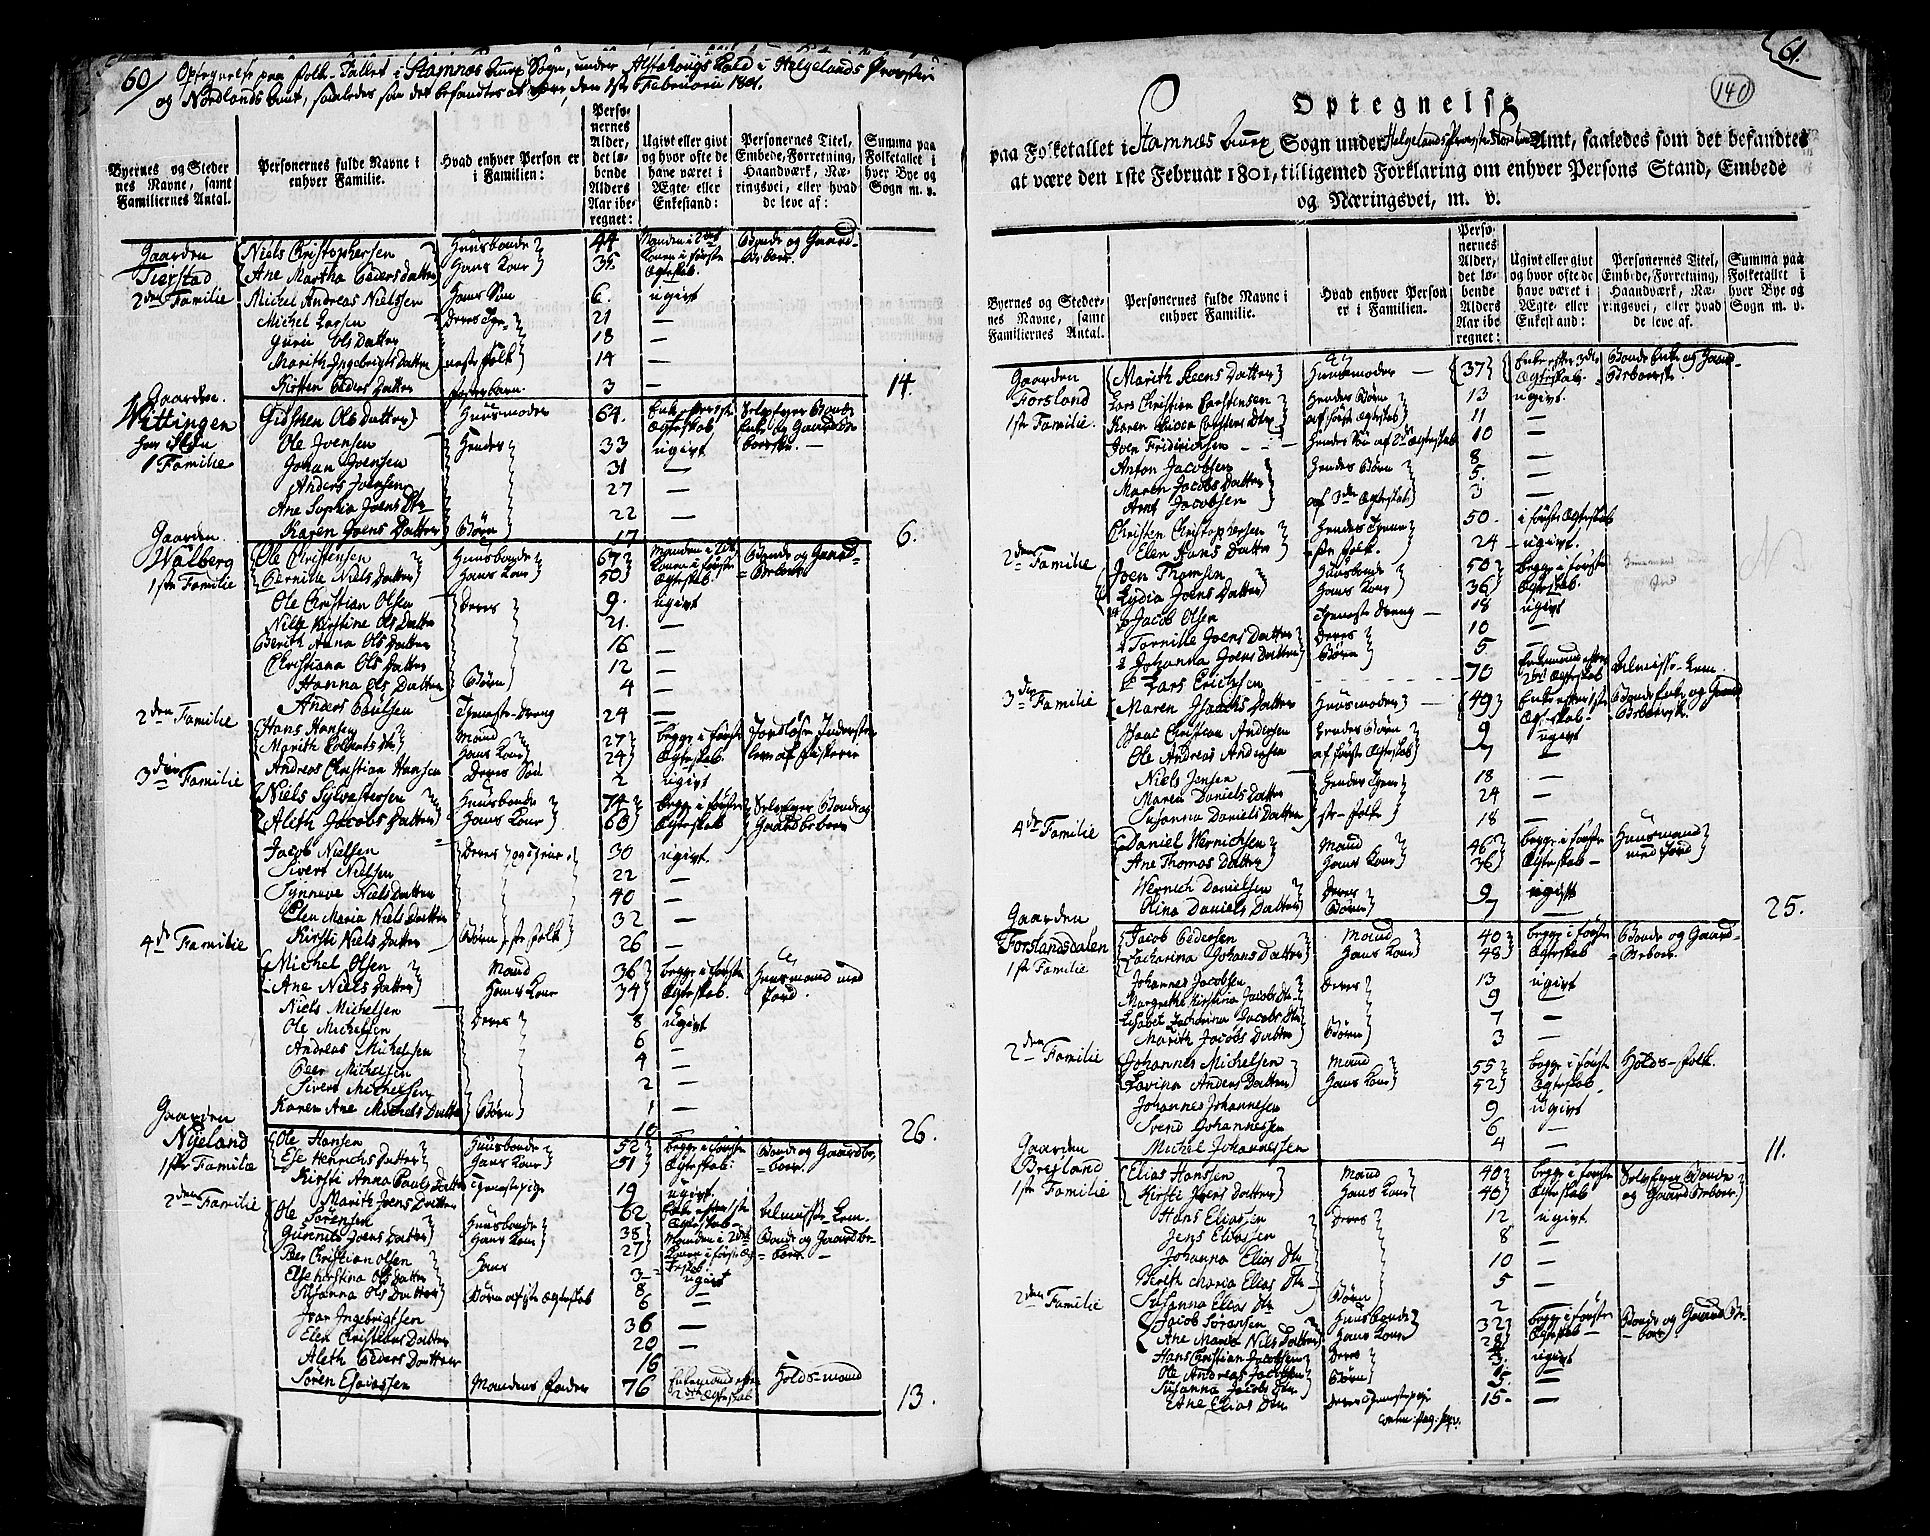 60
Optegnelse paa Folk-Tallet i Stamnæs Sogn, under Alstahougs Kald i Helgelands Provstie
og Nordlands Amt, saaledes som det befandtes at være, den 1ste Februarii 1801.
Byernes og Steder nes Navne, samt Familiernes Antal.
Personernes fulde Navne i enhver Familie.
Hvad enhver Person er i Familien:
Perso- nernes Alder, det lø- bende Alders Aar ibe- regnet:
Ugivt eller givt og hvor ofte de have været i Ægte- eller Enkestand:
Personernes Titel, Embede, Forretning, Haandværk, Næ- ringsvei, eller hvad de leve af:
Summa paa Folketallet i hver Bye og Sogn m. v.
Gaarden Niels Christophersen Huusbonde 44 Manden i 2det Bonde og Gaard-
Tiøstad Ane Martha Peders Datter Hans Kone 35 Konen i første Ægteskab
2den Familie Michel Andreas Nielssen Hans Søn 6. ugivt
Michel Larsen Deres Tje- 21 —
Guru Ols Datter 18 —
Marith Ingebrigts Datter neste folk 14 —
Kirsten Peders Datter 3 — 14.
Gaarden Wittingen Gidsken Ols Datter Huusmoder 64. Enke Ægteskab
Ole Joensen Hendes 33 ugivt
1 Familie Johan Joensen 31 —
Anders Joensen 27 —
Ane Sophia Joens Dtr 22 —
Karen Joens Datter Børn 17 6.
Gaarden Walberg Ole Christensen Huusbonde 67 Manden i 2det Bonde og Gaard-
1ste Familie Pernilla Niels Datter Hans Kone 50 Konen i første Ægteskab
Ole Christian Olsen Deres 9. ugivt
Nille Kirstine Ols Datter 21. —
Berith Anna Ols Datter 16 —
Christiana Ols Datter 12 —
Hanna Ols Datter Børn 4 —
Anders Poulsen Tjeneste-Dreng 24 —
2den Familie Hans Hansen Mand 27 begge i første Jordløse Inderster
Marith Dtr Hans Kone 24 Ægteskab. leve af fiskerie
Andreas Christian Hansen Deres Søn 2 ugivt
3die Familie Niels Sylvestersen Huusbonde 74 begge i første Selveyer Bonde og
Aleth Jacobs Datter Hans Kone 60 Ægteskab Gaardbeboere
Jacob Nielsen Deres 30 ugivt.
Sivert Nielsen 22 —
Synneve Niels Datter 40 —
Elen Maria Niels Datter 32 —
Kirsti Niels Datter Børn 26 —
4de Familie Michel Olsen Mand 36 begge i første Huusmand med
Ane Niels Datter Hans Kone 34 Ægteskab. Jord.
Niels Michelsen Deres 8 ugivt
Ole Michelsen 6 —
Andreas Michelsen 4 —
Peer Michelsen 2 —
Sivert Michelsen 1 —
Karen Ane Michels Datter Børn 10 — 26.
Gaarden Nyeland Ole Hansen Huusbonde 52 begge i første Bonde og Gaardbe-
1ste Familie Else Henrichs Datter Hans Kone 51 Ægteskab: -boer.
Kirsti Anna Pauls Datter Tjenestepige 19 ugivt
Marith Joens Datter 62 Almisse Lem.
2den Familie Ole Sørensen Huusbonde 38 Manden i 2det Bonde og Gaardbe-
Gunnild Joens Datter Hans Kone 27 Konen i første Ægteskab
Peer Christian Olsen Hans 3 ugivt
Else Kirstina Ols Datter 8 —
Susanna Ols Datter Børn af 1ste Ægteskab 6 —
Ivar Ingebrigtsen 36 —
Elen Christians Datter 20 —
Aleth Peders Datter 16
Søren Esaiassen Mandens Fader 76 Enkemand efter 2det Ægteskab Holds-mand 13.
61.
140
Optegnelse
paa Folketallet i Stamnæs Sogn under Helgelands Provstie Nordlands Amt, saaledes som det befandtes
at være den 1ste Februar 1801, tilligemed Forklaring om enhver Persons Stand, Embede
og Næringsvei, m. v.
Byernes og Steder- nes Navne, samt Familiernes Antal.
Personernes fulde Navne i enhver Familie.
Hvad enhver Person er i Familien.
Perso- nernes Alder, det lø- bende Alders Aar ibe- regnet:
Ugivt eller givt og hvor ofte de have været i Ægte- eller Enkestand:
Personernes Titel, Embede, Forretning, Haandværk, Næ- ringsvei, eller hvad de leve af.
Summa paa Folketallet i hver Bye og Sogn m. v.
Gaarden Marith Steens Datter Huusmoder 37 Enke efter 3die Bonde Enke og Gaard-
Forsland Lars Christian Carstensen Hendes Børn 13 ugivt.
1ste Familie. Karen Carstens Dtr af første Ægteskab 11 —
Joen Friderichsen Hendes Søn af 2det Ægteskab 10 —
Anton Jacobsen Hendes Børn 8 —
Maren Jacobs Datter 5. —
Arnt Jacobsen af 3die Ægteskab 3 —
Christen Christophersen Hendes Tjene- 50. i første Ægteskab
Elen Hans Datter ste folk. 24 ugivt.
2den Familie Joen Thomsen Huusbonde 50 begge i første
Lydia Joens Datter Hans Kone 36 Ægteskab.
Jacob Olsen Tjeneste Dreng 18 ugivt
Tornille Joens Datter Deres 10 —
Johanna Joens Datter Børn 5 —
Lars Erichsen 70 Enkemand efter 2det Ægteskab Almisse-Lem.
3die Familie Maren Jsachs Datter Huusmoder 49 Enke efter første Bonde Enke og Gaard
Isaac Christian Andersen Hendes Børn 9 ugivt
Ole Andreas Andersen af første Ægteskab 7 —
Niels Jensen Hendes Tjene- 18 —
Maren Daniels Datter 24 —
Susanna Daniels Datter ste-folk 18 —
4de Familie Daniel Wernichsen Mand 46 begge i første Huusmand
Ane Thomas Datter Hans Kone 36 Ægteskab med Jord
Wernich Danielsen Deres 9 ugivt
Olina Daniels Datter Børn 7 — 25.
Gaarden Forslandsdalen Jacob Pedersen Mand 40 begge i første Bonde og Gaard-
1ste Familie Zacharina Johans Datter Hans Kone 48 Ægteskab -beboer.
Johannes Jacobsen Deres 13 ugivt
Margrethe Kirstina Jacobs Dtr 9 —
Elisabet Zacharina Jacobs Dtr 7 —
Marith Jacobs Datter Børn 3 —
2den Familie Johannes Michelsen Mand 55 begge i første Holds-folk.
Lavina Anders Datter Hans Kone 52 Ægteskab
Johannes Johannesen 9 ugivt
Svend Johannessen 6 —
Michel Johannessen 4 — 11.
Gaarden Breiland Elias Hanssen Mand 40 begge i første Selveyer Bonde
1ste Familie Kirsti Joens Datter Hans Kone 40 Ægteskab og Gaard Beboer.
Hans Eliassen Deres 12 ugivt
Jens Eliassen 8 —
Johanna Elias Dtr 10 —
Berith Maria Elias Dtr 5 —
Susanna Elias Dtr Børn 2 —
2den Familie Jacob Sørensen Huusbonde 32 begge i første Bonde og Gaard Be-
Ane Maria Niels Datter Hans Kone 28 Ægteskab -boer
Hans Christian Jacobsen Deres 3. ugivt
Ole Andreas Jacobsen Børn —
Susanna Jacobs Dtr 5. —
Ane Elias Dtr Deres Tjenestepige 15. —